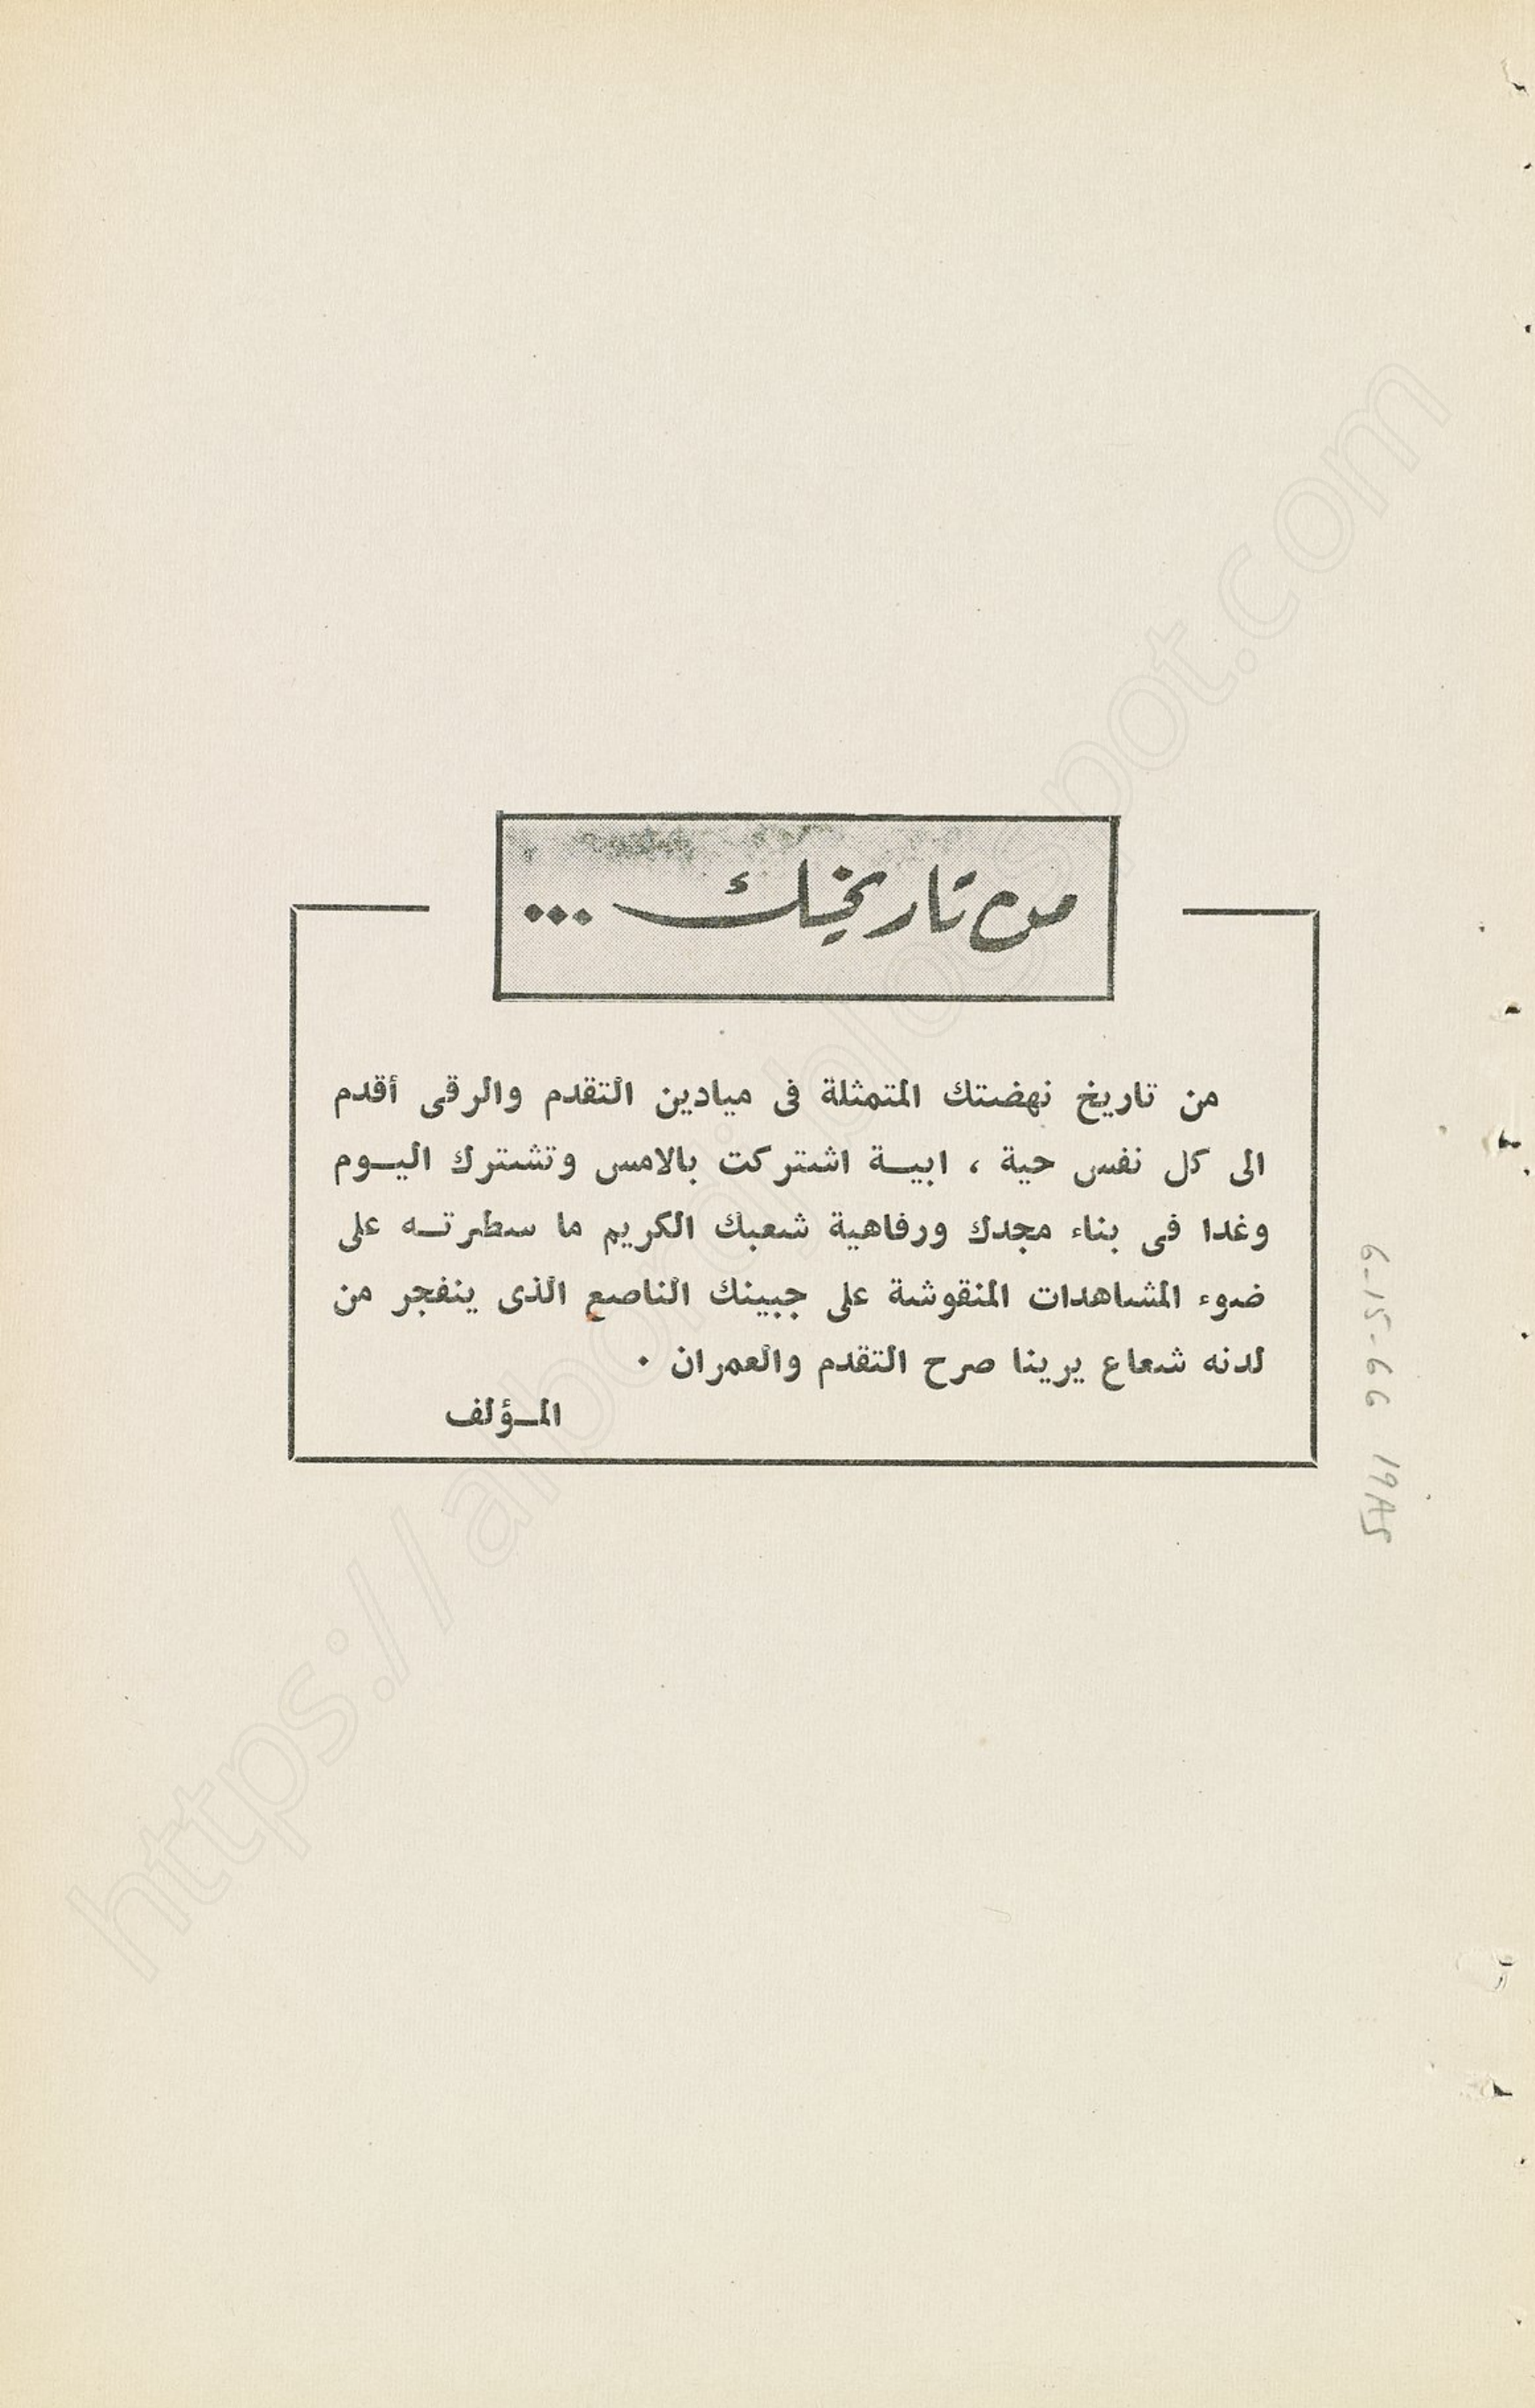 من تاريخك ...
من تاريخ نهضتك المتمثلة فى ميادين التقدم والرقى أقدم
الى كل نفس حية ، ابيــة اشتركت بالامس وتشترك اليــوم
وغدا فى بناء مجدك ورفاهية شعبك الكريم ما سطرتــه على
ضوء المشاهدات المنقوشة على جبينك الناصع الذى ينفجر من
لدنه شعاع يرينا صرح التقدم والعمران ٠
المــؤلف
6-15-66
https://alpordj.blogspot.com